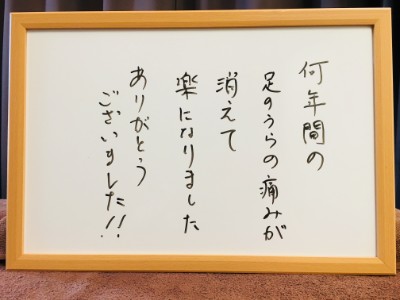 何年間の
足のうらの痛みが
消えて
楽になりました
ありがとう
ございました!!